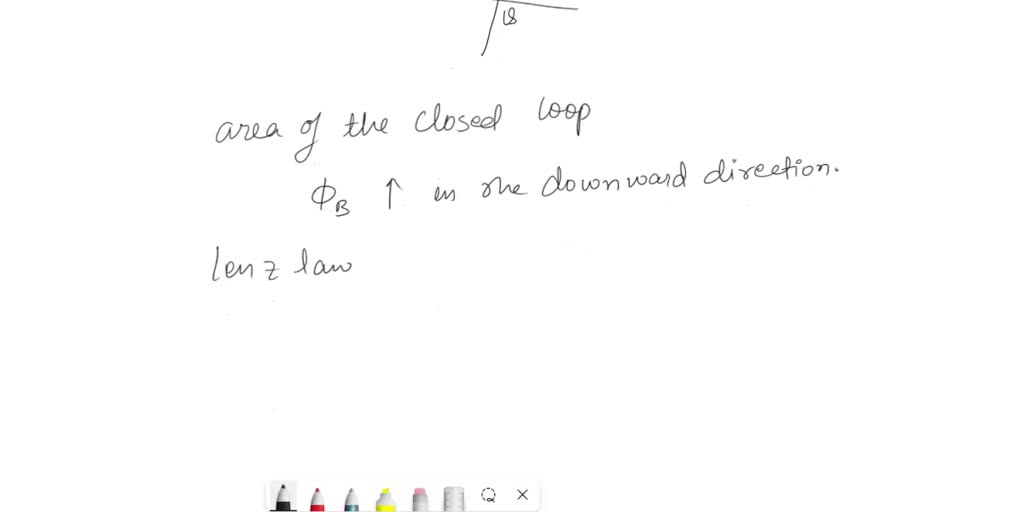 area of the closed loop
ΦB ↑ in the downward direction.
lenz law